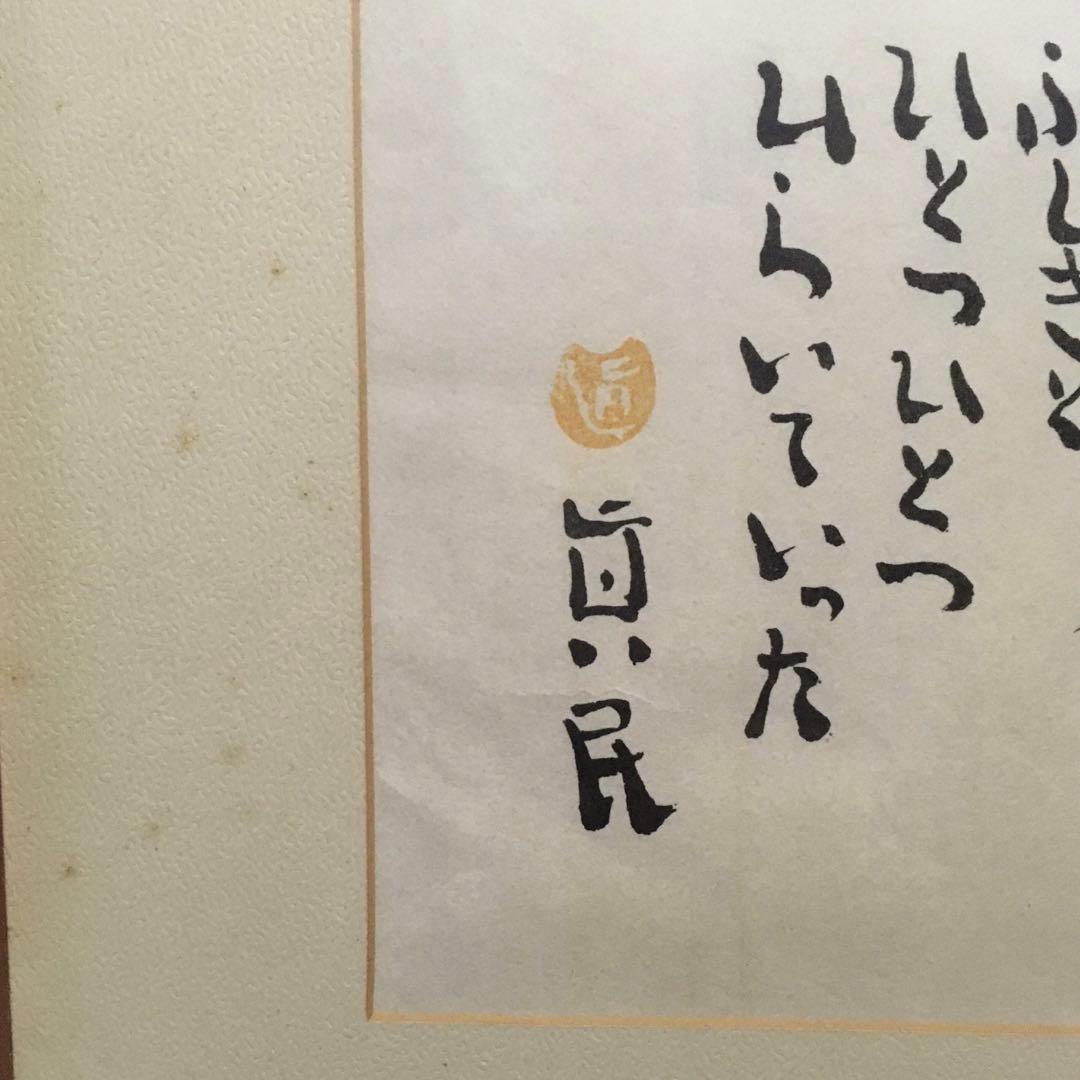 ふしぎと
ひとつひとつ
ひらいていった
眞民